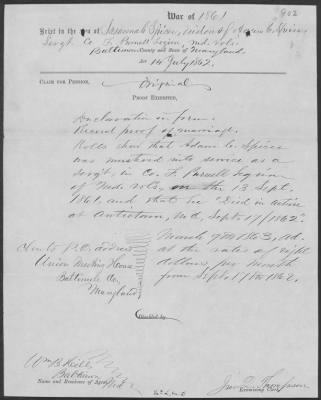 War of 1861
902
Brief in the case of Susannah Spicer, widow of Adam C. Spicer,
Sergt. Co. F. Purnell Legion, Md. vols.
Baltimore County and State of Maryland
14 July 1862.
Claim for Pension.
Original
Proof Exhibited,
Declaration in form.
Record proof of marriage.
Rolls show that Adam C. Spicer
was mustered into service as a
Serg't, in Co. F. Purnell Legion
of Md. vols, on the 13 Sept.
1861, and that he "Died in action
at Antietam, Md, Sept. 17/1862."
March 9th 1863, ad.
at the rate of eight
dollars per month
from Sept. 17th 1862.
P.O. address
Union Meeting House
Baltimore Co.
Maryland
Checked by
Wm. B. Hill
Baltimore
Md
Name and Residence of Agent.
Thompson
Examining Clerk.